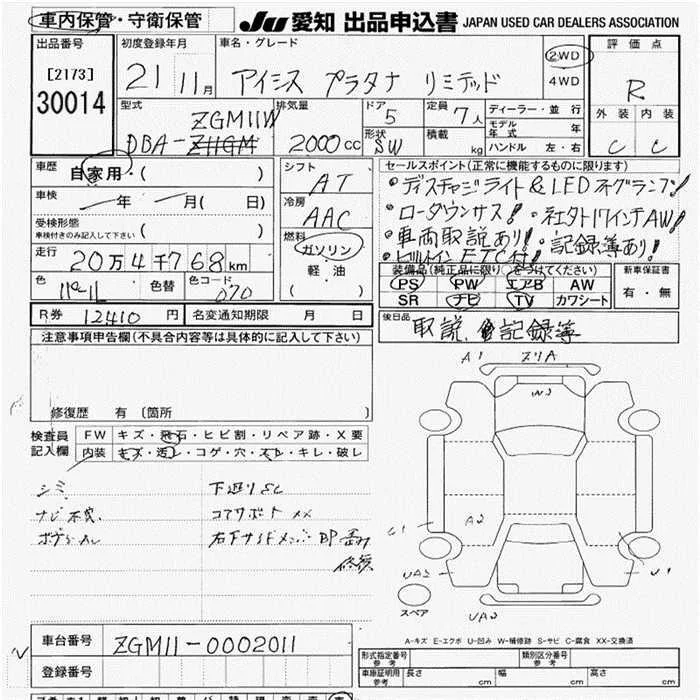 車内保管・守衛保管 JU 愛知 出品申込書 JAPAN USED CAR DEALERS ASSOCIATION
出品番号 初度登録年月 車名・グレード 評価点
[2173] 21 11月 アイシス プラタナ リミテッド 2WD 4WD R
30014 外装 内装
型式 排気量 ドア 定員 ディーラー・並行 C C
ZGM11W 5 7人 モデル年式 年
DBA-Z11GM 2000cc 形状 SW 積載 kg ハンドル 左・右
車歴 自家用・( ) シフト AT セールスポイント(正常に機能するものに限ります)
車検 年 月( 日) 冷房 AAC •ディスチャジライト&LEDフォグランプ!
受検形態 ( ) •ローダウンサス!・社外17インチAW!
車検付きのみ記入して下さい 燃料 •車両取説あり!・記録簿あり!
走行 20万4千768km ガソリン •ビルトインETC付!
軽・油 装備品(純正品に限り)をつけてください 新車保証書
色 パール 色替 色コード 070 ( ) PS PW エアB AW 有・無
SR ナビ TV カワシート
R券 12410円 名変通知期限 月 日 後日品 取説、記録簿
注意事項申告欄(不具合内容等は具体的に記入して下さい)
A1
W3
修復歴 有〔箇所 〕
検査員記入欄 FW キズ・飛石・ヒビ割・リペア跡・X要
内装 キズ・汚レ・コゲ・穴・スレ・キレ・破レ
シミ 下廻りSC
ナビ不良 コアサポートXX
ボデーカレ 右フサイドメンバーBP歪み
修復
A2
U1
UA2
スペア
UA2
A-キズ E-エクボ U-凹み W-補修跡 S-サビ C-腐食 XX-交換済
車台番号 ZGM11-0002011
登録番号
形式指定番号 参考 類別区分番号 参考
車庫証明用 参考 長さ cm 幅 cm 高さ cm